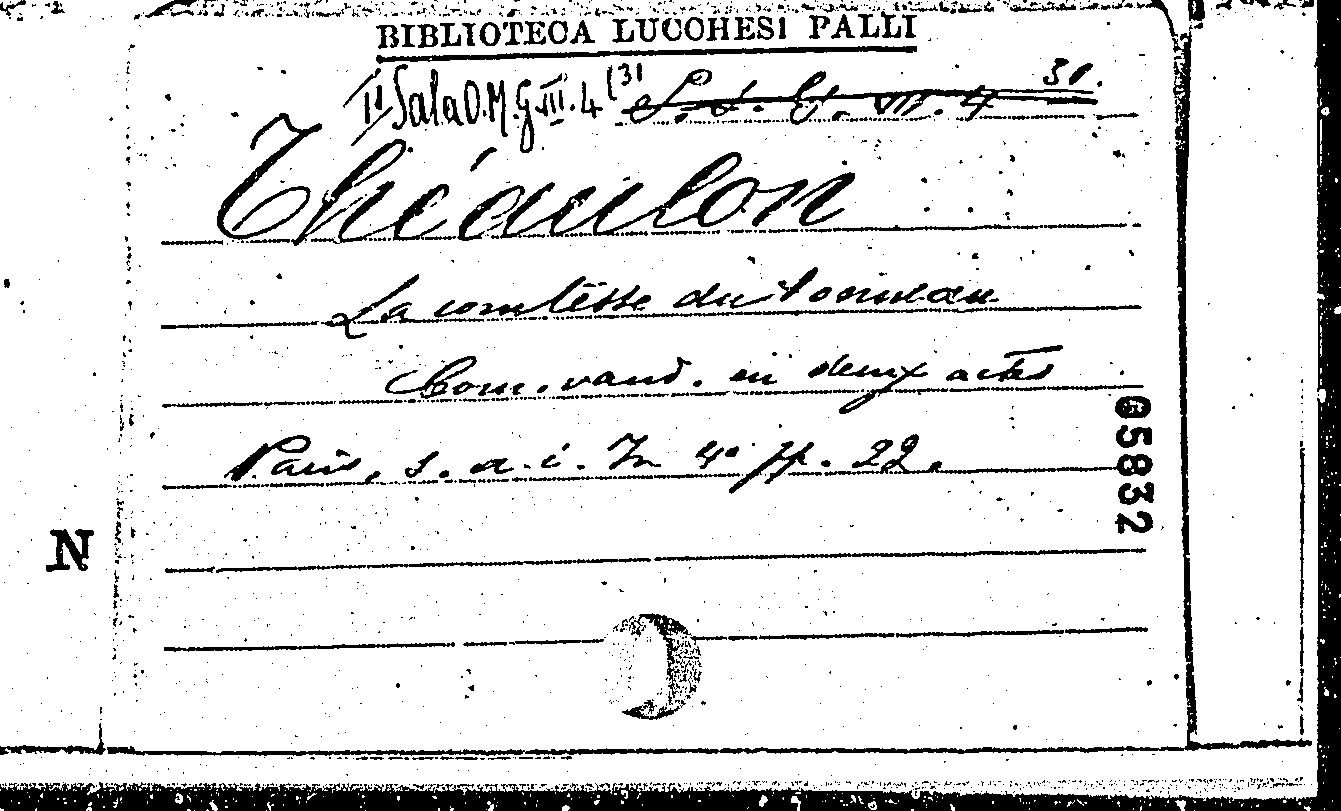 BIBLIOTECA LUCCHESI PALLI
Iª Sala O.M. G. VII. 4 (31
VII. 4 30.
Théaulon
La comtesse du tonneau
Com. vaud. en deux actes
Paris, s. a. i. In 4º pp. 22.
65832
N